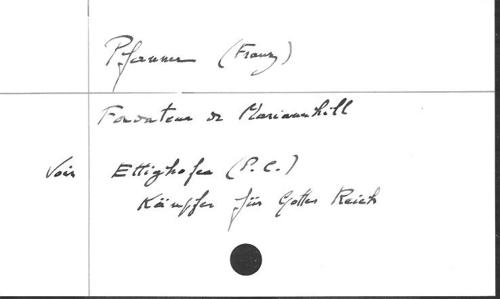 Pfanner (Franz)
Fondateur de Mariannhill
Voir Ettighofer (P. C.)
Kämpfer für Gottes Reich